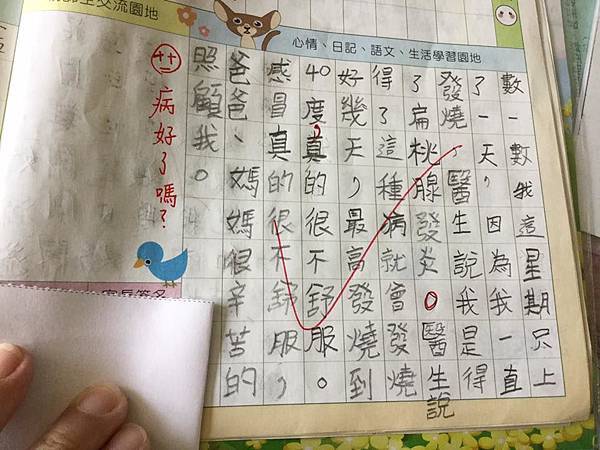 師生交流園地
心情、日記、語文、生活學習園地
數一數我這星期只上
了一天，因為我一直
發燒，醫生說我是得
了扁桃腺發炎。醫生說
得了這種病就會發燒
好幾天，最高發燒到
40度，真的很不舒服。
感冒真的很不舒服，
爸爸、媽媽很辛苦的
照顧我。
++ 病好了嗎？